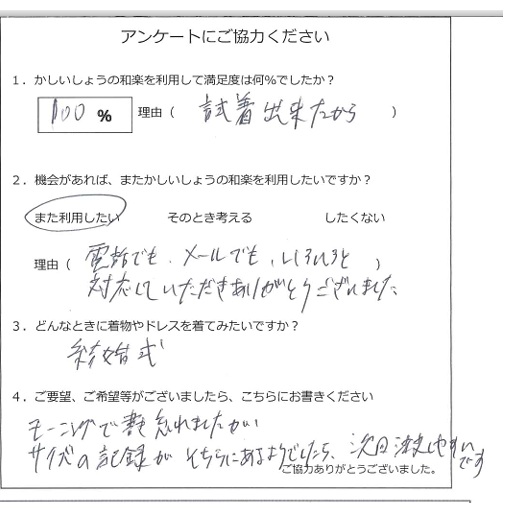 アンケートにご協力ください
1．かしいしょうの和楽を利用して満足度は何%でしたか？
100 % 理由（ 試着出来たから ）
2．機会があれば、またかしいしょうの和楽を利用したいですか？
また利用したい そのとき考える したくない
理由（ 電話でも、メールでも、いろいろと ）
対応していただきありがとうございました
3．どんなときに着物やドレスを着てみたいですか？
結婚式
4．ご要望、ご希望等がございましたら、こちらにお書きください
モーニングで 忘れましたが
サイズの記録がそちらにあるようでしたら、次回注文しやすい
です
ご協力ありがとうございました。